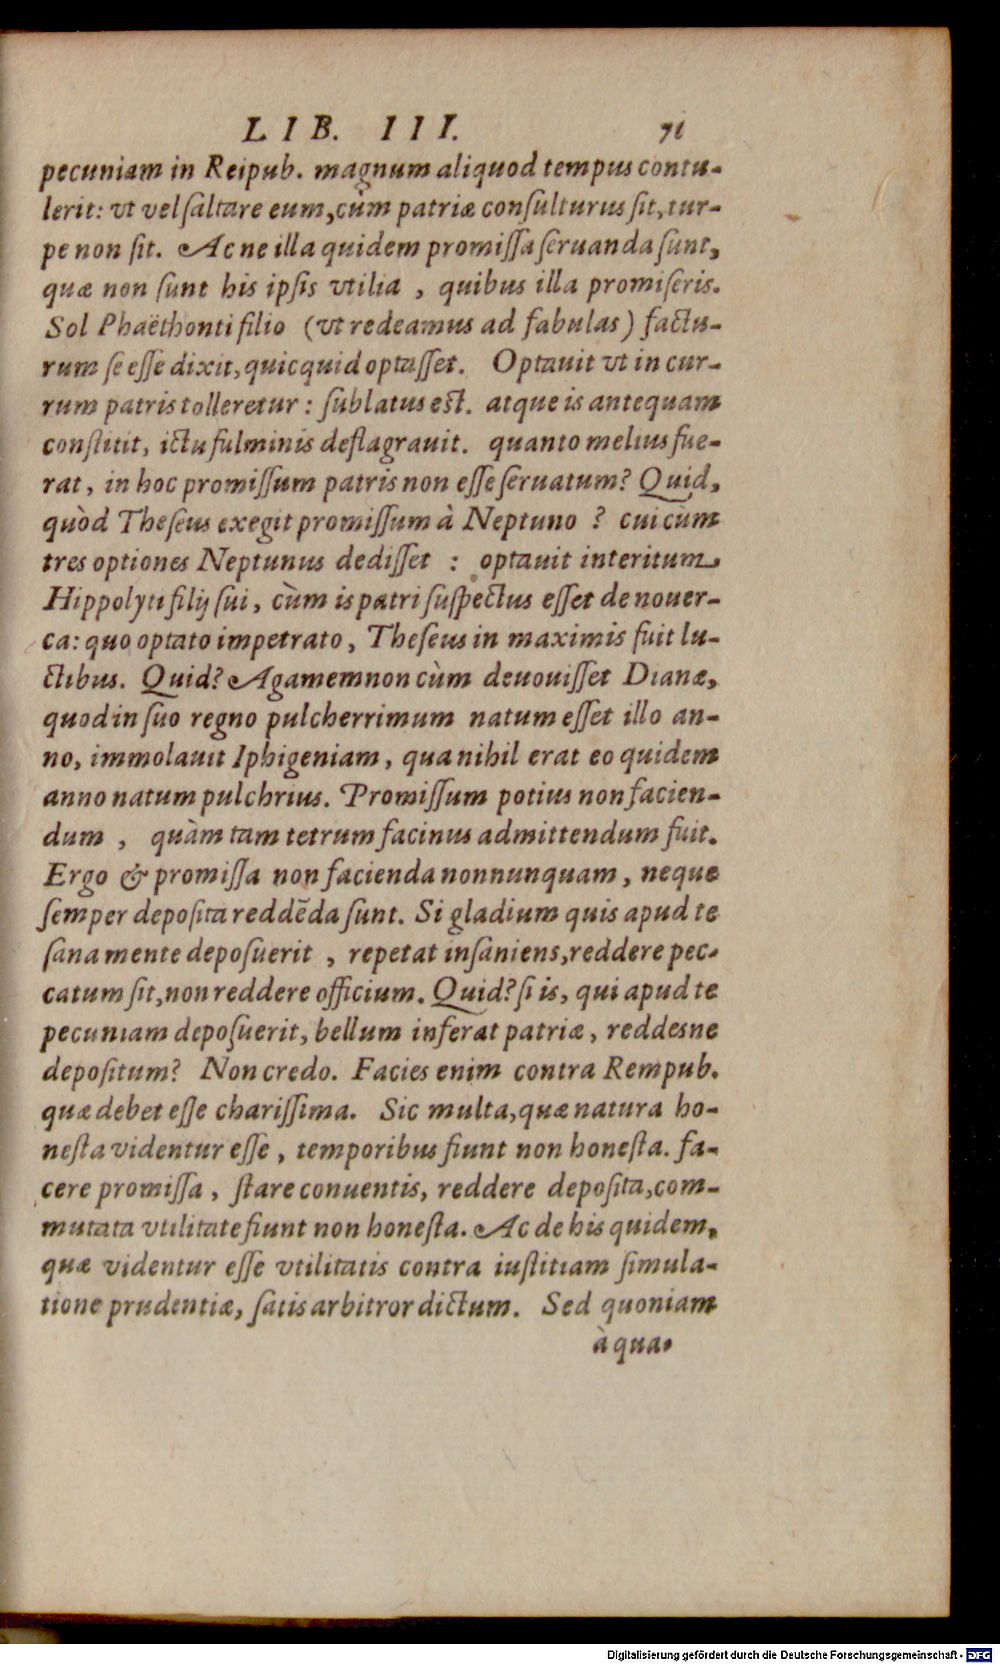 LIB. III. 71
pecuniam in Reipub. magnum aliquod tempus contu-
lerit: vt vel ſaltare eum, cùm patriæ conſulturus ſit, tur-
pe non ſit. Ac ne illa quidem promiſſa ſeruanda ſunt,
quæ non ſunt his ipſis vtilia, quibus illa promiſeris.
Sol Phaëthonti filio (vt redeamus ad fabulas) factu-
rum ſe eſſe dixit, quicquid optaſſet. Optauit vt in cur-
rum patris tolleretur: ſublatus est. atque is antequam
conſtitit, ictu fulminis deflagrauit. quanto melius fue-
rat, in hoc promiſſum patris non eſſe ſeruatum? Quid,
quòd Theſeus exegit promiſſum à Neptuno? cui cùm
tres optiones Neptunus dediſſet: optauit interitum
Hippolyti filij ſui, cùm is patri ſuſpectus eſſet de nouer-
ca: quo optato impetrato, Theſeus in maximis fuit lu-
ctibus. Quid? Agamemnon cùm deuouiſſet Dianæ,
quod in ſuo regno pulcherrimum natum eſſet illo an-
no, immolauit Iphigeniam, qua nihil erat eo quidem
anno natum pulchrius. Promiſſum potius non facien-
dum, quàm tam tetrum facinus admittendum fuit.
Ergo & promiſſa non facienda nonnunquam, neque
ſemper depoſita reddēda ſunt. Si gladium quis apud te
ſana mente depoſuerit, repetat inſaniens, reddere pec-
catum ſit, non reddere officium. Quid? ſi is, qui apud te
pecuniam depoſuerit, bellum inferat patriæ, reddesne
depoſitum? Non credo. Facies enim contra Rempub.
quæ debet eſſe chariſſima. Sic multa, quæ natura ho-
neſta videntur eſſe, temporibus fiunt non honeſta. fa-
cere promiſſa, ſtare conuentis, reddere depoſita, com-
mutata vtilitate fiunt non honeſta. Ac de his quidem,
quæ videntur eſſe vtilitatis contra iuſtitiam ſimula-
tione prudentiæ, ſatis arbitror dictum. Sed quoniam
à qua-
Digitalisierung gefördert durch die Deutsche Forschungsgemeinschaft - DFG